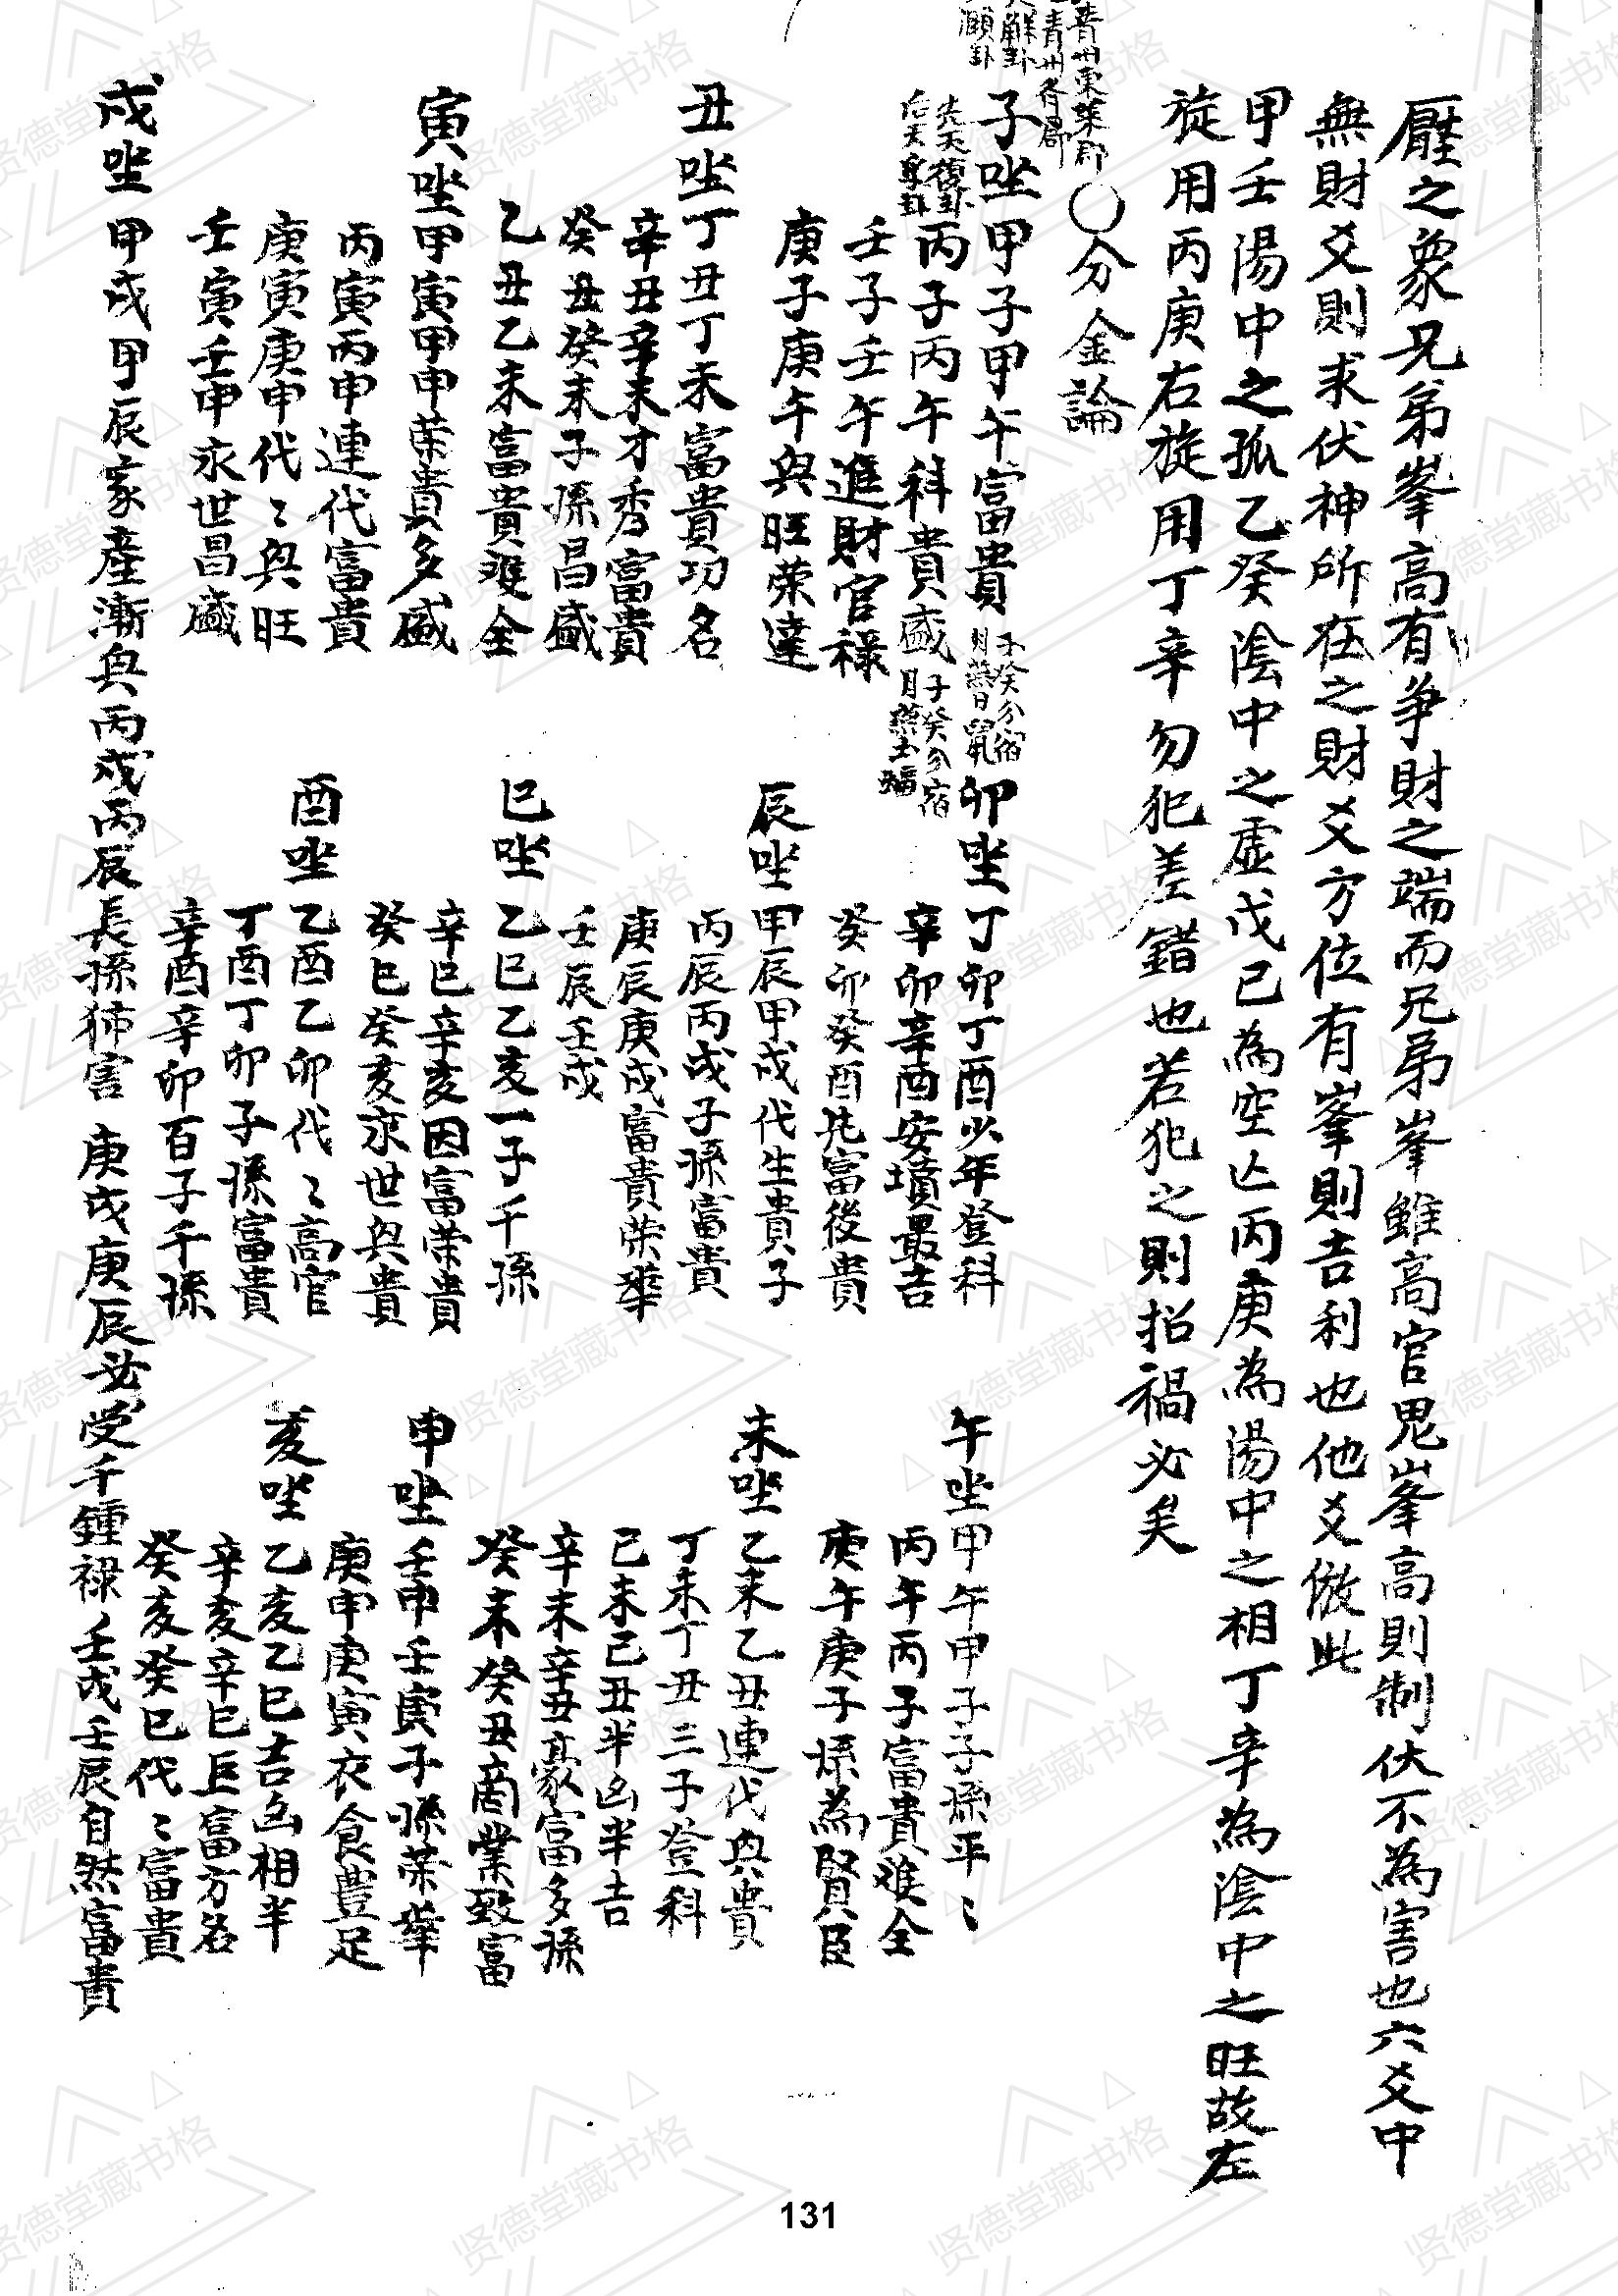 壓之象兄弟峯高有爭財之端而兄弟峯雖高官鬼峯高則制伏不為害也六爻中
無財爻則求伏神所在之財爻方位有峯則吉利也他爻倣此
甲壬陽中之孤乙癸陰中之虛戊己為空亡丙庚為陽中之相丁辛為陰中之旺故左
旋用丙庚右旋用丁辛勿犯差錯也若犯之則招禍必矣
○分金論
青州東萊郡
青州齊局
解卦
頤卦
子坐甲子甲午富貴
子癸分宿
月燕日鼠
先天復卦
后天
丙子丙午科貴盛
子癸分宿
月燕土蝠
壬子壬午進財官祿
庚子庚午興旺榮達
丑坐丁丑丁未富貴功名
辛丑辛未才秀富貴
癸丑癸未子孫昌盛
乙丑乙未富貴难全
寅坐甲寅甲申荣貴多盛
丙寅丙申連代富貴
庚寅庚申代〻興旺
壬寅壬申永世昌盛
卯坐丁卯丁酉少年登科
辛卯辛酉安墳最吉
癸卯癸酉先富後貴
辰坐甲辰甲戌代生貴子
丙辰丙戌子孫富貴
庚辰庚戌富貴荣華
壬辰壬戌
巳坐乙巳乙亥一子千孫
辛巳辛亥因富荣貴
癸巳癸亥永世興貴
酉坐乙酉乙卯代〻高官
丁酉丁卯子孫富貴
辛酉辛卯百子千孫
午坐甲午甲子子孫平〻
丙午丙子富貴难全
庚午庚子孫為賢臣
未坐乙未乙丑連代興貴
丁未丁丑三子登科
己未己丑半凶半吉
辛未辛丑豪富多孫
癸未癸丑商業致富
申坐壬申壬寅子孫荣華
庚申庚寅衣食豊足
亥坐乙亥乙巳吉凶相半
辛亥辛巳巨富方名
癸亥癸巳代〻富貴
戌坐甲戌甲辰家產漸興丙戌丙辰長孫沛害庚戌庚辰必受千鍾祿壬戌壬辰自然富貴
131
贤德堂藏书格